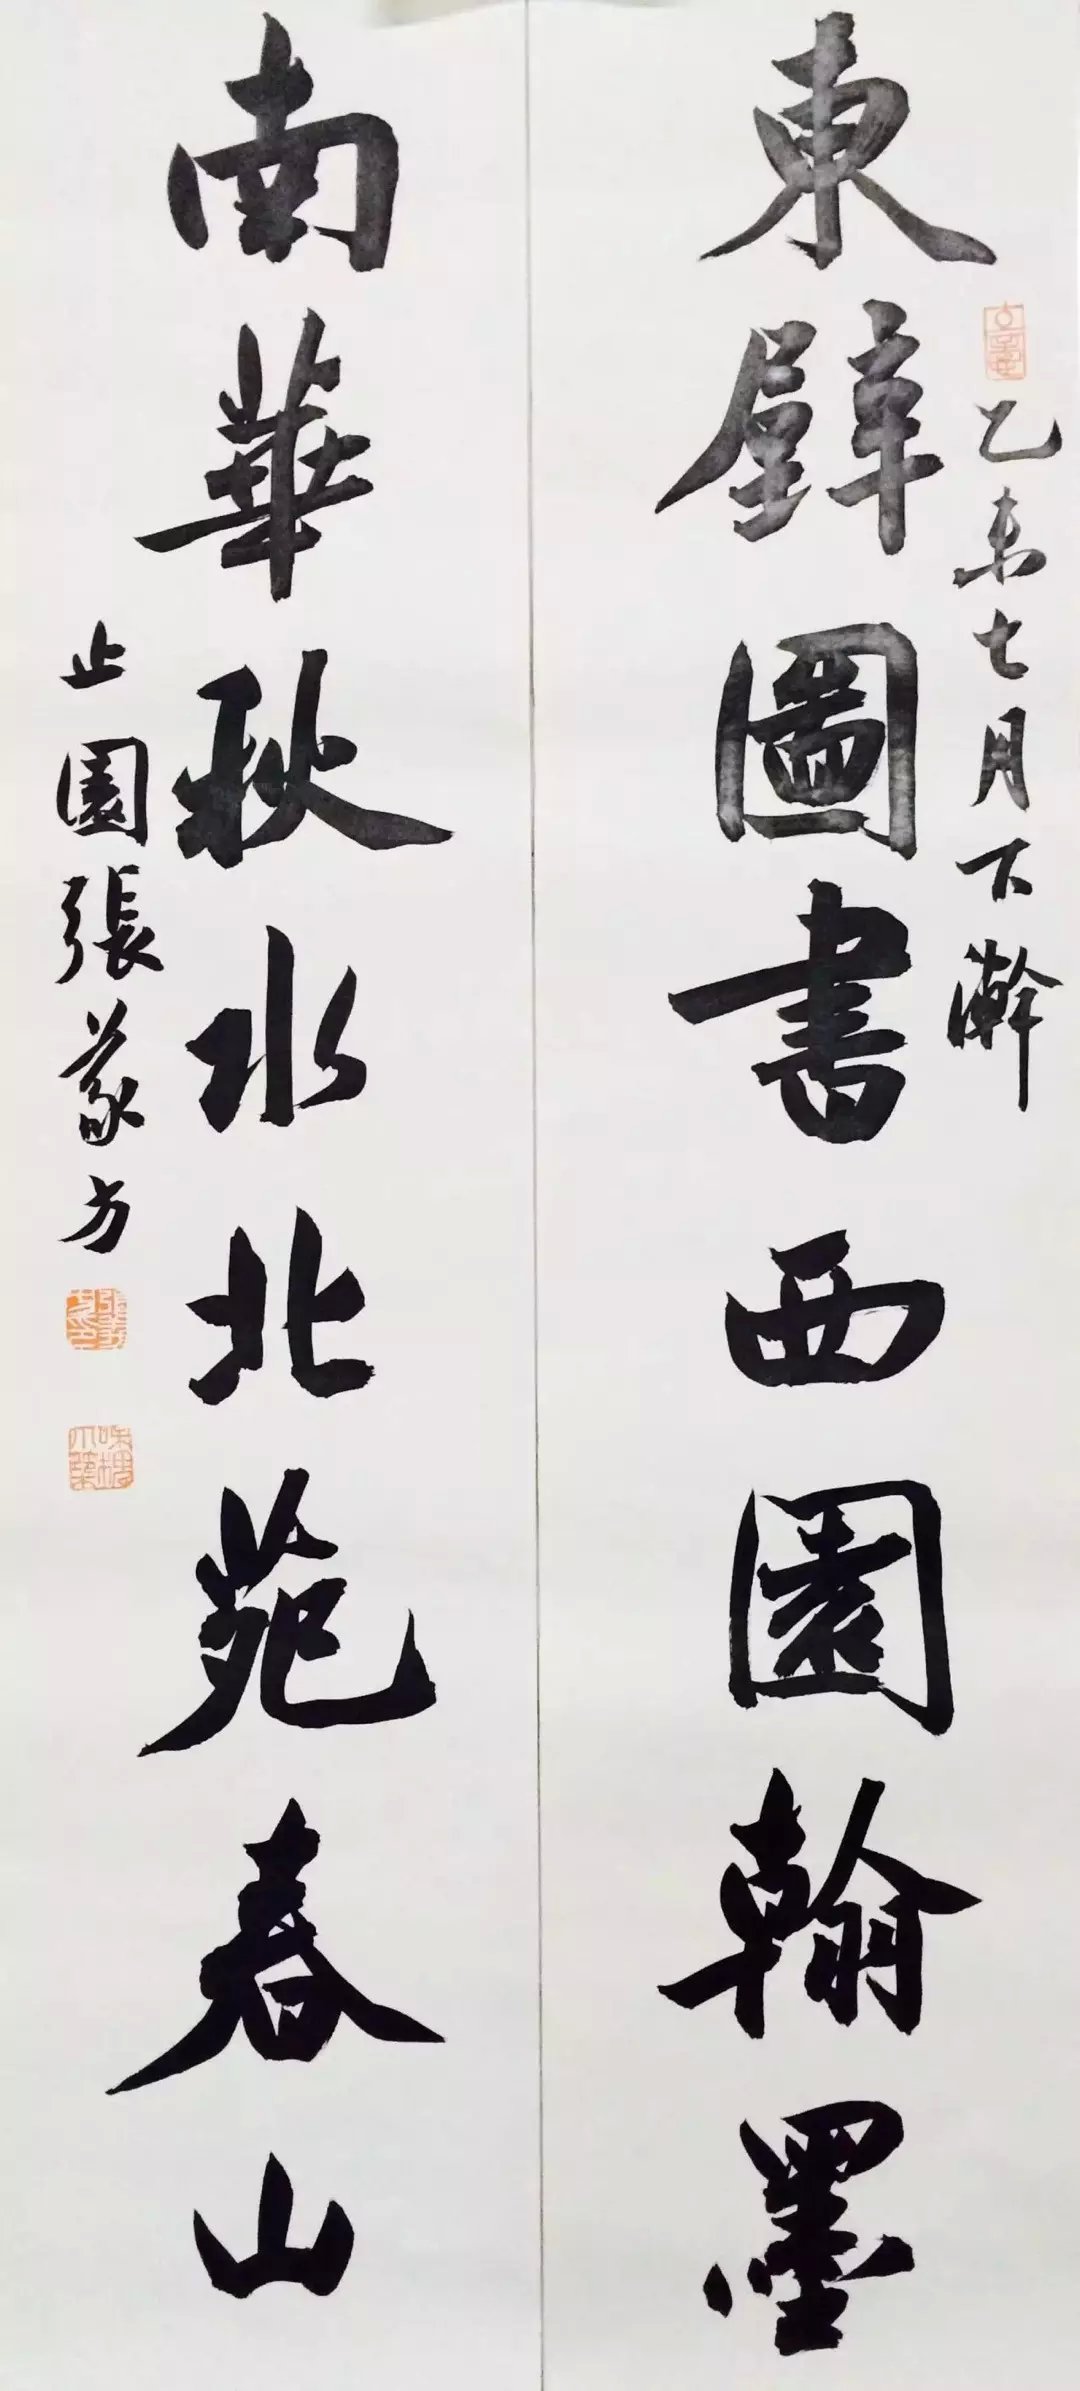 東壁圖書西園翰墨
乙未七月下澣
南華秋水北苑春山
止園張蒙方